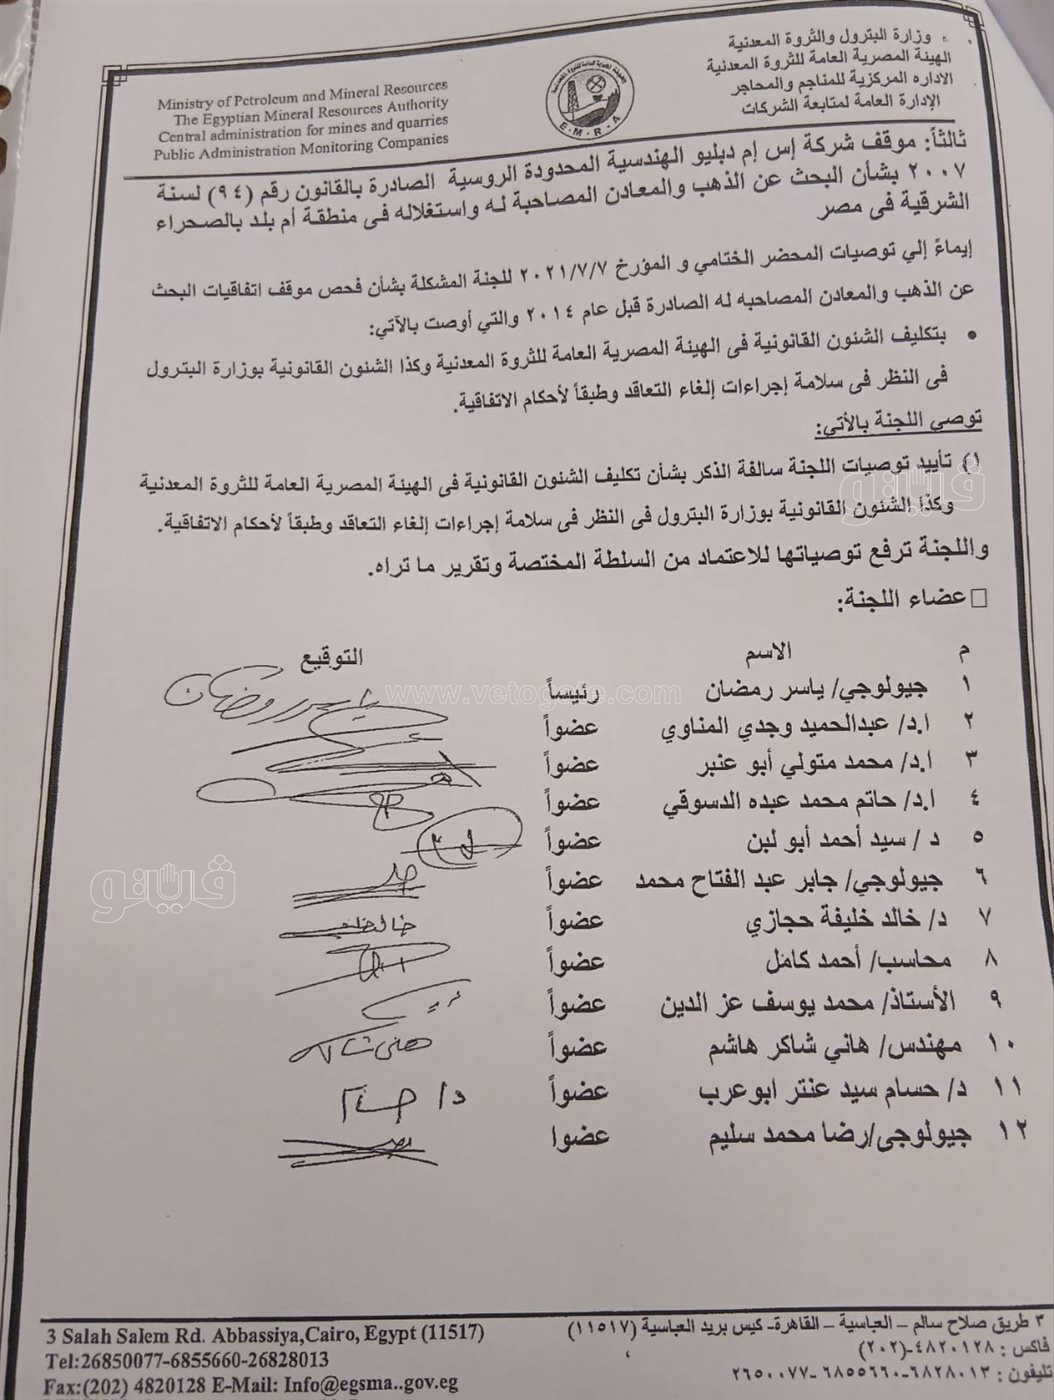 وزارة البترول والثروة المعدنية
الهيئة المصرية العامة للثروة المعدنية
الاداره المركزية للمناجم والمحاجر
الإدارة العامة لمتابعة الشركات
Ministry of Petroleum and Mineral Resources
The Egyptian Mineral Resources Authority
Central administration for mines and quarries
Public Administration Monitoring Companies
E.M.R.A
ثالثاً: موقف شركة إس إم دبليو الهندسية المحدودة الروسية الصادرة بالقانون رقم (٩٤) لسنة
٢٠٠٧ بشأن البحث عن الذهب والمعادن المصاحبة له واستغلاله فى منطقة أم بلد بالصحراء
الشرقية فى مصر
إيماءً إلي توصيات المحضر الختامي و المؤرخ ٢٠٢١/٧/٧ للجنة المشكلة بشأن فحص موقف اتفاقيات البحث
عن الذهب والمعادن المصاحبه له الصادرة قبل عام ٢٠١٤ والتي أوصت بالآتي:
• بتكليف الشئون القانونية فى الهيئة المصرية العامة للثروة المعدنية وكذا الشئون القانونية بوزارة البترول
فى النظر فى سلامة إجراءات إلغاء التعاقد وطبقاً لأحكام الاتفاقية.
توصي اللجنة بالأتي:
١) تأييد توصيات اللجنة سالفة الذكر بشأن تكليف الشئون القانونية فى الهيئة المصرية العامة للثروة المعدنية
وكذا الشئون القانونية بوزارة البترول فى النظر فى سلامة إجراءات إلغاء التعاقد وطبقاً لأحكام الاتفاقية.
واللجنة ترفع توصياتها للاعتماد من السلطة المختصة وتقرير ما تراه.
□ عضاء اللجنة:
م الاسم التوقيع
١ جيولوجي/ ياسر رمضان رئيساً ياسر رمضان
٢ ا.د/ عبدالحميد وجدي المناوي عضواً
٣ ا.د/ محمد متولي أبو عنبر عضواً
٤ ا.د/ حاتم محمد عبده الدسوقي عضواً
٥ د / سيد أحمد أبو لبن عضواً
٦ جيولوجي/ جابر عبد الفتاح محمد عضواً
٧ د/ خالد خليفة حجازي عضواً
٨ محاسب/ أحمد كامل عضواً
٩ الأستاذ/ محمد يوسف عز الدين عضواً
١٠ مهندس/ هاني شاكر هاشم عضواً
١١ د/ حسام سيد عنتر ابوعرب عضواً
١٢ جيولوجى/رضا محمد سليم عضوا
www.vetogate.com
ڤيتو
ڤيتو
٣ طريق صلاح سالم – العباسية – القاهرة- كيس بريد العباسية (١١٥١٧)
فاكس : ٤٨٢٠١٢٨-(٢٠٢)
تليفون : ٦٨٢٨٠١٣-٦٨٥٥٦٦٠-٢٦٥٠٠٧٧
3 Salah Salem Rd. Abbassiya,Cairo, Egypt (11517)
Tel:26850077-6855660-26828013
Fax:(202) 4820128 E-Mail: Info@egsma..gov.eg